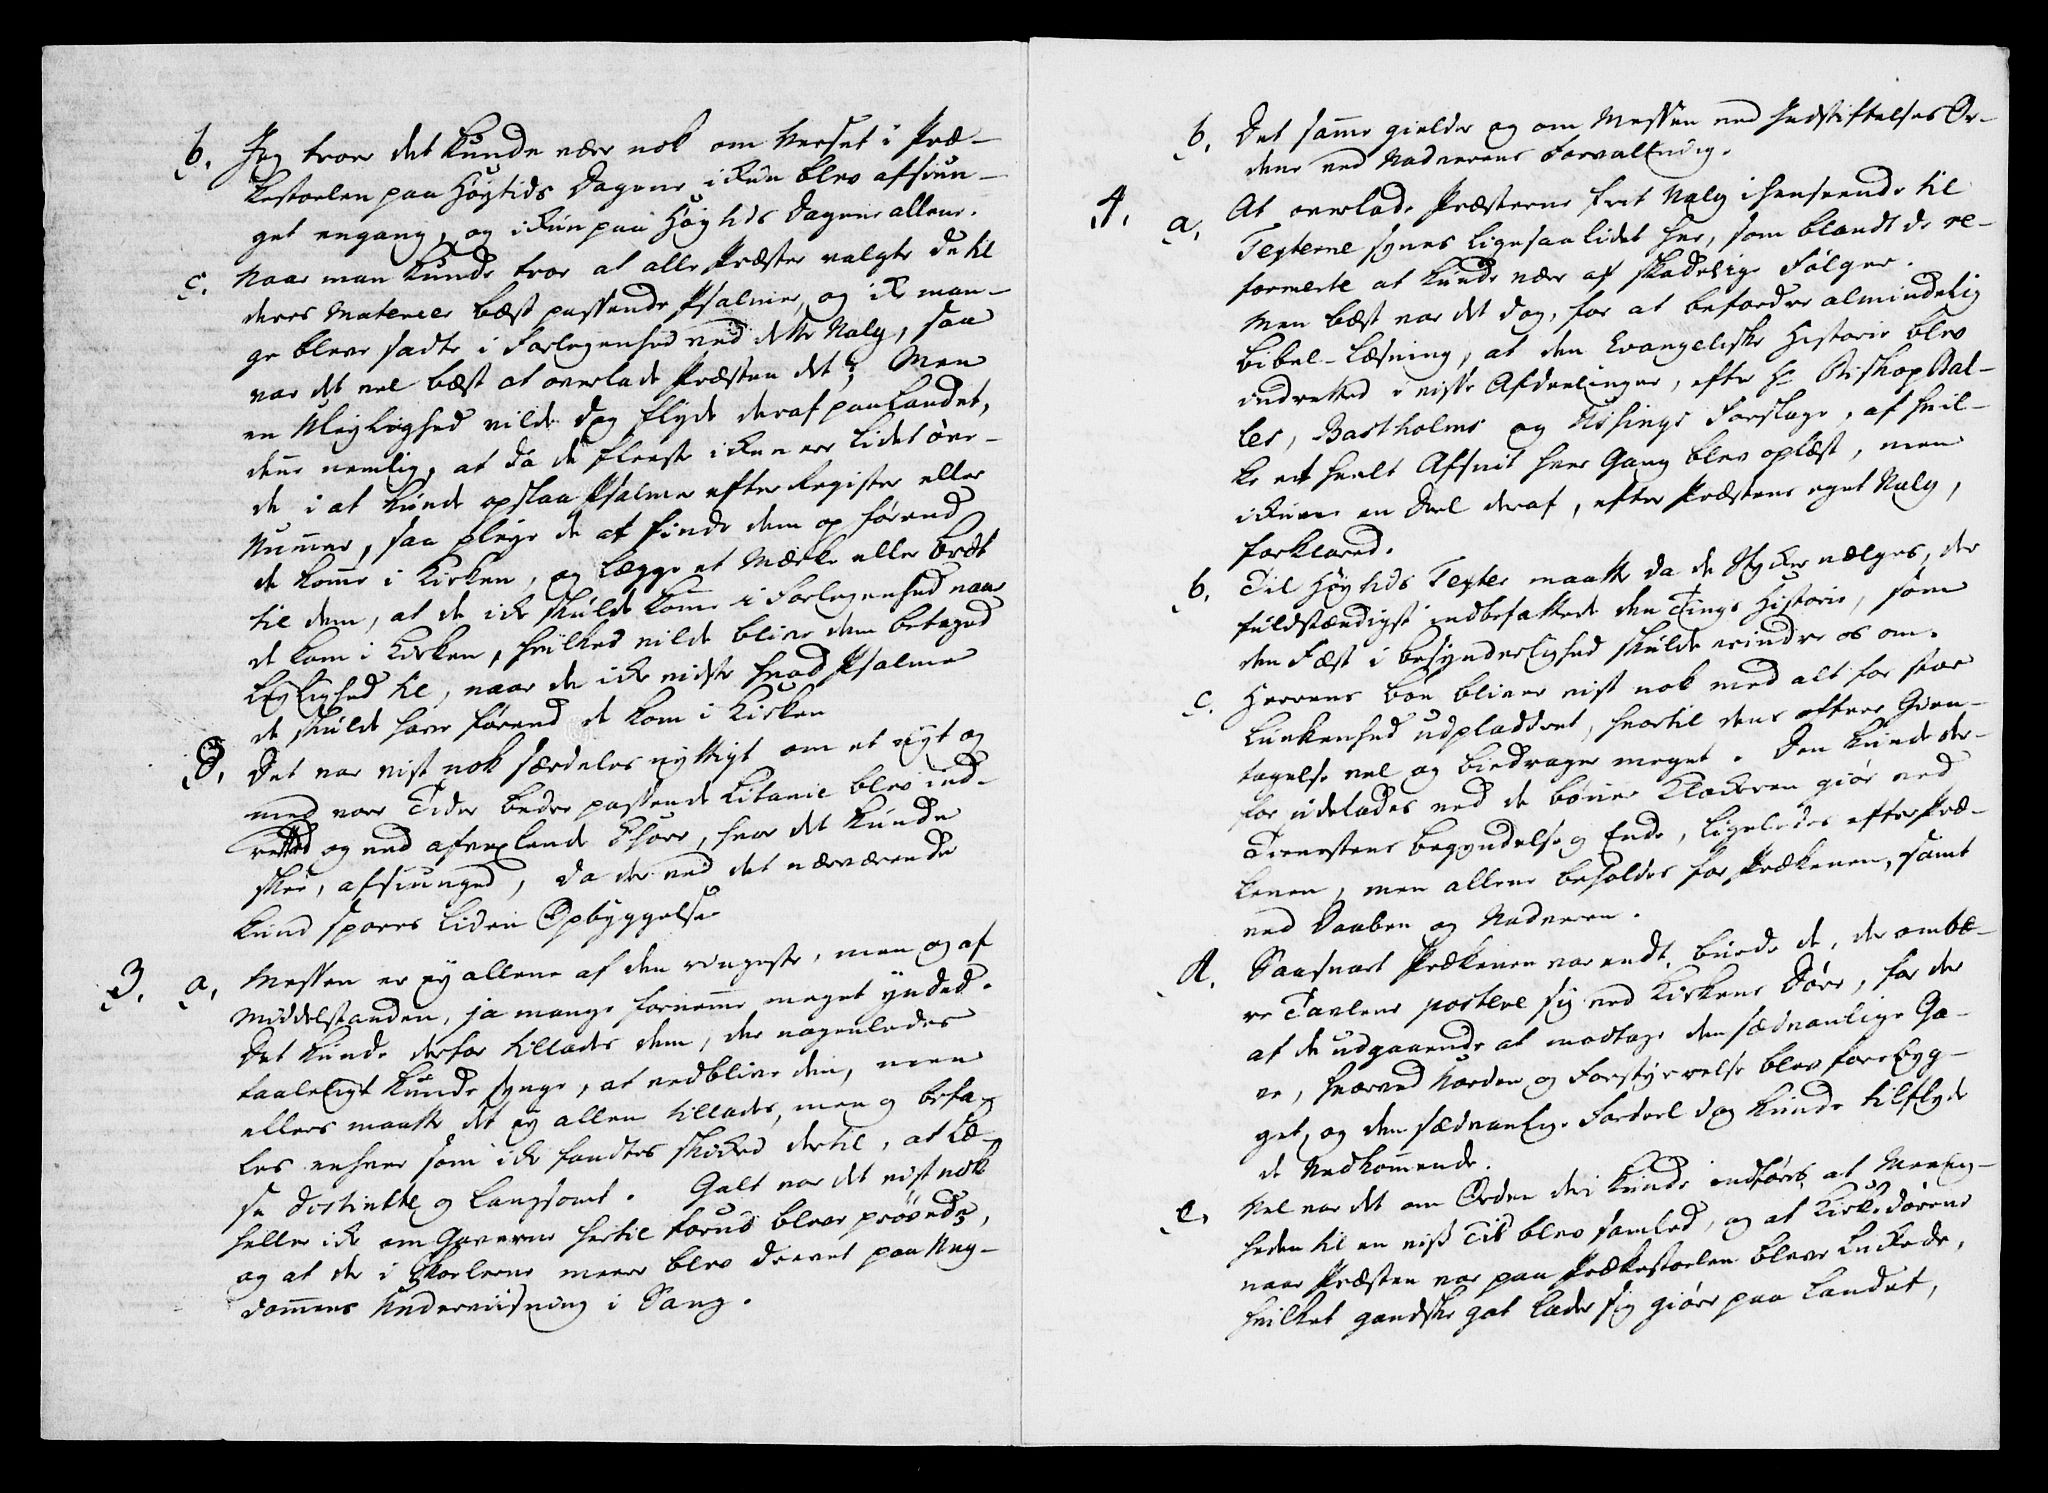 b. Jeg troer det kunde være nok om Verset i Præ-
kestoelen paa Høytids Dagene ikun blev afsiun-
get engang, og ikun paa Høytids Dagene allene.
c. Naar man kunde troe at alle Præster valgte de til
deres Materier bæst passende Psalmer, og ik man-
ge bleve sadte i Forlegenhed ved dette Valg, saa
var det vel bæst at overlade Præsten det; Men
en Uleylighed vilde dog flyde deraf paa Landet,
den nemlig, at da de fleeste ikun ere lidet øve-
de i at kunde opslaa Psalmer efter Register eller
Numer, saa pleye de at finde dem op førend
de kome i Kirken, og lægge et Mærke eller Bræt
til dem, at de ik skulde kome i Forlegenhed naar
de kom i Kirken, hvilket vilde blive dem betaget
Leylighed til, naar de ik vidste hvad Psalmer
de skulde have førend de kom i Kirken
d. Det var vist nok særdeles nyttigt om et nyt og
med vore Tider bedre passende Litanie blev ind-
rettet og ved afvexlende Chore, hvor det kunde
skee, afsiunged, da der ved det nærværende
kund spores liden Opbyggelse
3. a. Messen er ey allene af den ringeste, men og af
Middelstanden, ja mange fornemme meget yndet.
Det kunde derfor tillades dem, der nogenledes
taaleligt kunde synge, at vedblive den, men
ellers maatte det ey allene tillades, men og befa-
les enhver som ik fandtes skicket dertil, at læ-
se distinkte og langsomt. Galt var det vist nok
heller ik om Gaverne hertil forud bleve prøvede,
og at der i Skolerne meere blev drevet paa Ung-
dommens Underviisning i Sang.
b. Det samme gielder og om Messen ved Indstiftelses Or-
dene ved Nadverens Forvaltning.
4. a. At overlade Præsterne frit Valg i henseende til
Texterne synes ligesaa lidet her, som blandt de re-
formerte at kunde være af skadelige Følger.
Men bæst var det dog, for at befordre almindelig
Bibel-Læsning, at den Evangeliske Historie blev
indrettet i visse Afdeelinger, efter Hr Biskop Bal-
les, Bastholms og Forslage, af hvil-
ke et heelt Afsnit hver Gang blev oplæst, men
ikun en Deel deraf, efter Præstens eget Valg,
forklaret.
b. Til Høytids Texter maatte da de Stycker vælges, der
fuldstændigst indbefattede den Tings Historie, som
den Fæst i besynderlighed skulde erindre os om.
c. Herrens Bøn bliver vist nok med alt for stor
Lunkenhed udpladdret, hvortil dens oftere Gien-
tagelse vel og biedrager meget. Den kunde der-
for udelades ved de bønner Klockeren giør ved
Tienestens begyndelse og Ende, ligeledes efter Præ-
kenen, men allene beholdes for Prækenen, samt
ved Daaben og Nadveren.
d. Saasnart Prækenen var endt, burde de, der ombæ-
re Tavlene postere sig ved Kirkens Dører, for der
af de udgaaende at modtage den sædvanlige Ga-
ve, hvorved Uorden og Forstyrrelse blev forebyg-
get, og den sædvanlige Fordeel dog kunde tilflyde
de Vedkommende.
e. Vel var det om Orden deri kunde indføres at Meenig-
heden til en viss Tid blev samlet, og at Kirkedørene
naar Præsten var paa Prækestoelen bleve luckede,
hvilket gandske got lader sig giøre paa Landet,